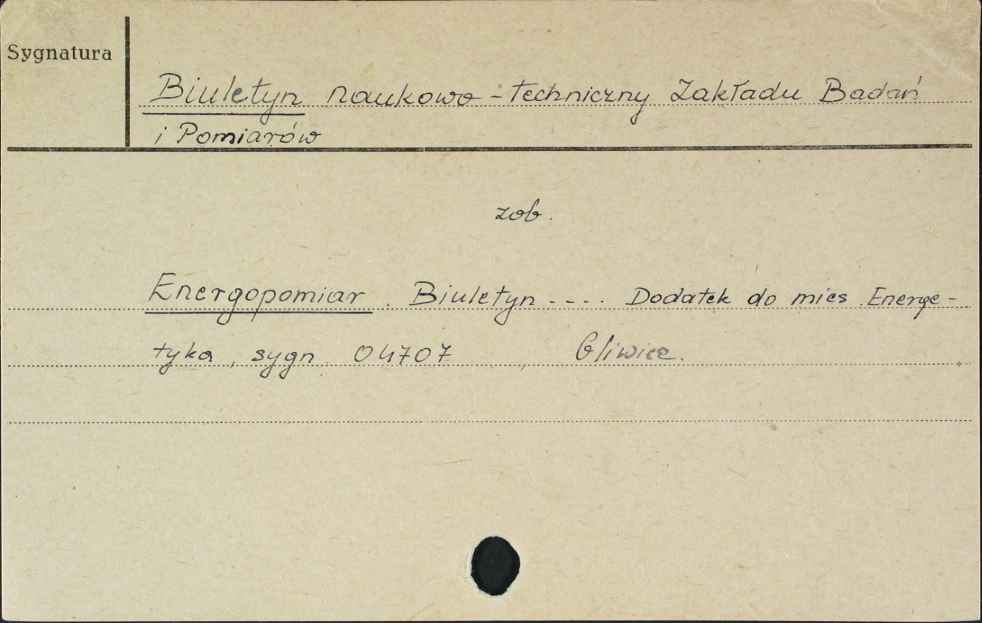 Sygnatura
Biuletyn naukowo-techniczny Zakładu Badań
i Pomiarów
zob.
Energopomiar. Biuletyn .... Dodatek do mies. Energe-
tyka, sygn. 04707 Gliwice.